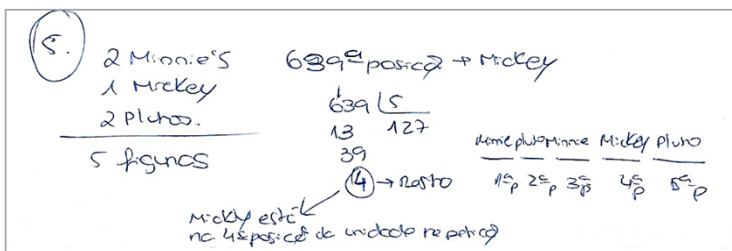 5.
2 Minnie's
1 Mickey
2 Plutos.
5 figuras
639ª posição → Mickey
639 | 5
13 127
39
4 → resto
Minnie pluto Minnie Mickey Pluto
1ª p 2ª p 3ª p 4ª p 5ª p
Micky está
na 4ª posição da unidade repetição